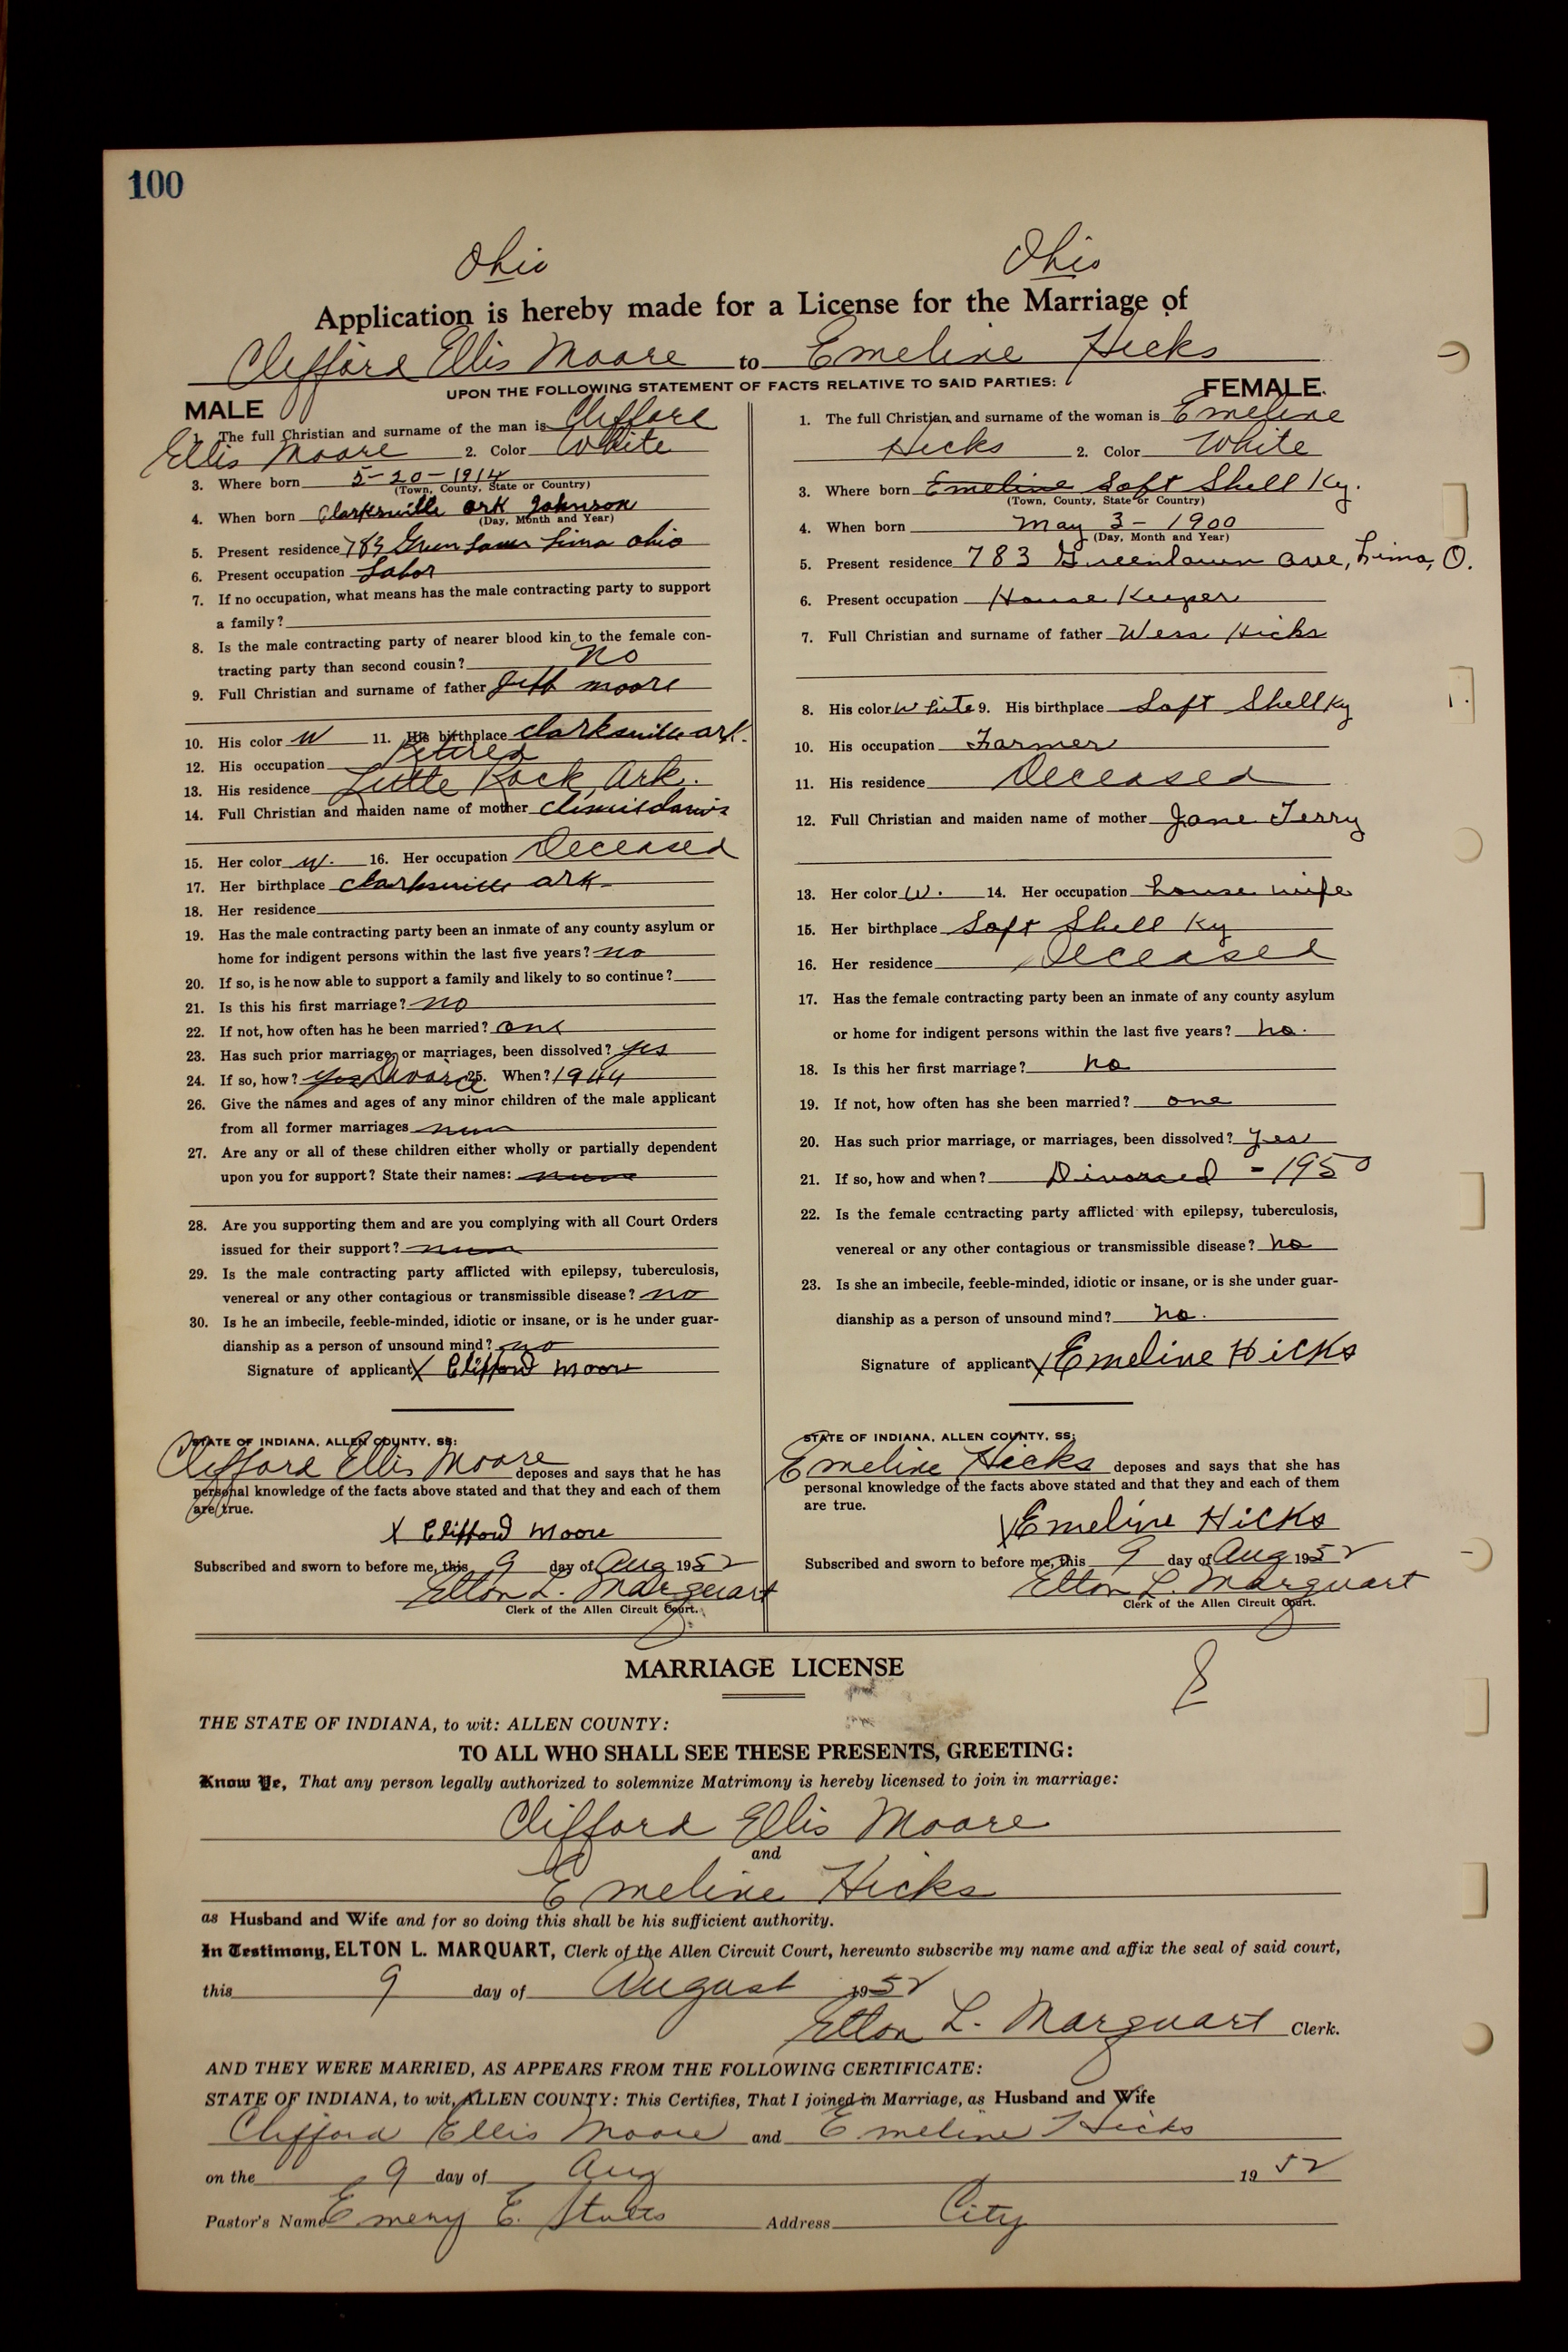 100
Ohio Ohio
Application is hereby made for a License for the Marriage of
Clifford Ellis Moore to Emeline Hicks
UPON THE FOLLOWING STATEMENT OF FACTS RELATIVE TO SAID PARTIES:
MALE
The full Christian and surname of the man is Clifford
Ellis Moore 2. Color White
3. Where born 5-20-1914
(Town, County, State or Country)
4. When born Clarksville Ark Johnson
(Day, Month and Year)
5. Present residence 783 Lima Ohio
6. Present occupation Labor
7. If no occupation, what means has the male contracting party to support
a family?
8. Is the male contracting party of nearer blood kin to the female con-
tracting party than second cousin? No
9. Full Christian and surname of father Jeff Moore
10. His color W 11. His birthplace Clarksville Ark.
12. His occupation Retired
13. His residence Little Rock, Ark.
14. Full Christian and maiden name of mother
15. Her color W. 16. Her occupation Deceased
17. Her birthplace Clarksville Ark
18. Her residence
19. Has the male contracting party been an inmate of any county asylum or
home for indigent persons within the last five years? no
20. If so, is he now able to support a family and likely to so continue?
21. Is this his first marriage? no
22. If not, how often has he been married? one
23. Has such prior marriage, or marriages, been dissolved? yes
24. If so, how? yes Divorce 25. When? 1944
26. Give the names and ages of any minor children of the male applicant
from all former marriages
27. Are any or all of these children either wholly or partially dependent
upon you for support? State their names:
28. Are you supporting them and are you complying with all Court Orders
issued for their support?
29. Is the male contracting party afflicted with epilepsy, tuberculosis,
venereal or any other contagious or transmissible disease? no
30. Is he an imbecile, feeble-minded, idiotic or insane, or is he under guar-
dianship as a person of unsound mind? no
Signature of applicant X Clifford Moore
STATE OF INDIANA, ALLEN COUNTY, SS:
Clifford Ellis Moore deposes and says that he has
personal knowledge of the facts above stated and that they and each of them
are true.
X Clifford Moore
Subscribed and sworn to before me, this 9 day of Aug 1952
Elton L. Marquart
Clerk of the Allen Circuit Court.
FEMALE.
1. The full Christian and surname of the woman is Emeline
Hicks 2. Color White
3. Where born Emeline Soft Shell Ky.
(Town, County, State or Country)
4. When born May 3 - 1900
(Day, Month and Year)
5. Present residence 783 Greenlawn Ave, Lima, O.
6. Present occupation House Keeper
7. Full Christian and surname of father Wess Hicks
8. His color White 9. His birthplace Soft Shell Ky
10. His occupation Farmer
11. His residence Deceased
12. Full Christian and maiden name of mother Jane Terry
13. Her color W. 14. Her occupation house wife
15. Her birthplace Soft Shell Ky
16. Her residence Deceased
17. Has the female contracting party been an inmate of any county asylum
or home for indigent persons within the last five years? no.
18. Is this her first marriage? no
19. If not, how often has she been married? one
20. Has such prior marriage, or marriages, been dissolved? yes
21. If so, how and when? Divorced - 1950
22. Is the female contracting party afflicted with epilepsy, tuberculosis,
venereal or any other contagious or transmissible disease? no
23. Is she an imbecile, feeble-minded, idiotic or insane, or is she under guar-
dianship as a person of unsound mind? no.
Signature of applicant X Emeline Hicks
STATE OF INDIANA, ALLEN COUNTY, SS:
Emeline Hicks deposes and says that she has
personal knowledge of the facts above stated and that they and each of them
are true.
X Emeline Hicks
Subscribed and sworn to before me, this 9 day of Aug 1952
Elton L. Marquart
Clerk of the Allen Circuit Court.
MARRIAGE LICENSE
THE STATE OF INDIANA, to wit: ALLEN COUNTY:
TO ALL WHO SHALL SEE THESE PRESENTS, GREETING:
Know Ye, That any person legally authorized to solemnize Matrimony is hereby licensed to join in marriage:
Clifford Ellis Moore
and
Emeline Hicks
as Husband and Wife and for so doing this shall be his sufficient authority.
In Testimony, ELTON L. MARQUART, Clerk of the Allen Circuit Court, hereunto subscribe my name and affix the seal of said court,
this 9 day of August 1952
Elton L. Marquart Clerk.
AND THEY WERE MARRIED, AS APPEARS FROM THE FOLLOWING CERTIFICATE:
STATE OF INDIANA, to wit, ALLEN COUNTY: This Certifies, That I joined in Marriage, as Husband and Wife
Clifford Ellis Moore and Emeline Hicks
on the 9 day of Aug 1952
Pastor's Name Emery E. Stults Address City